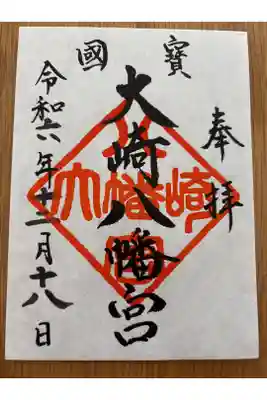 國寶
奉拝
大崎八幡宮
令和六年十二月十八日
大幡崎